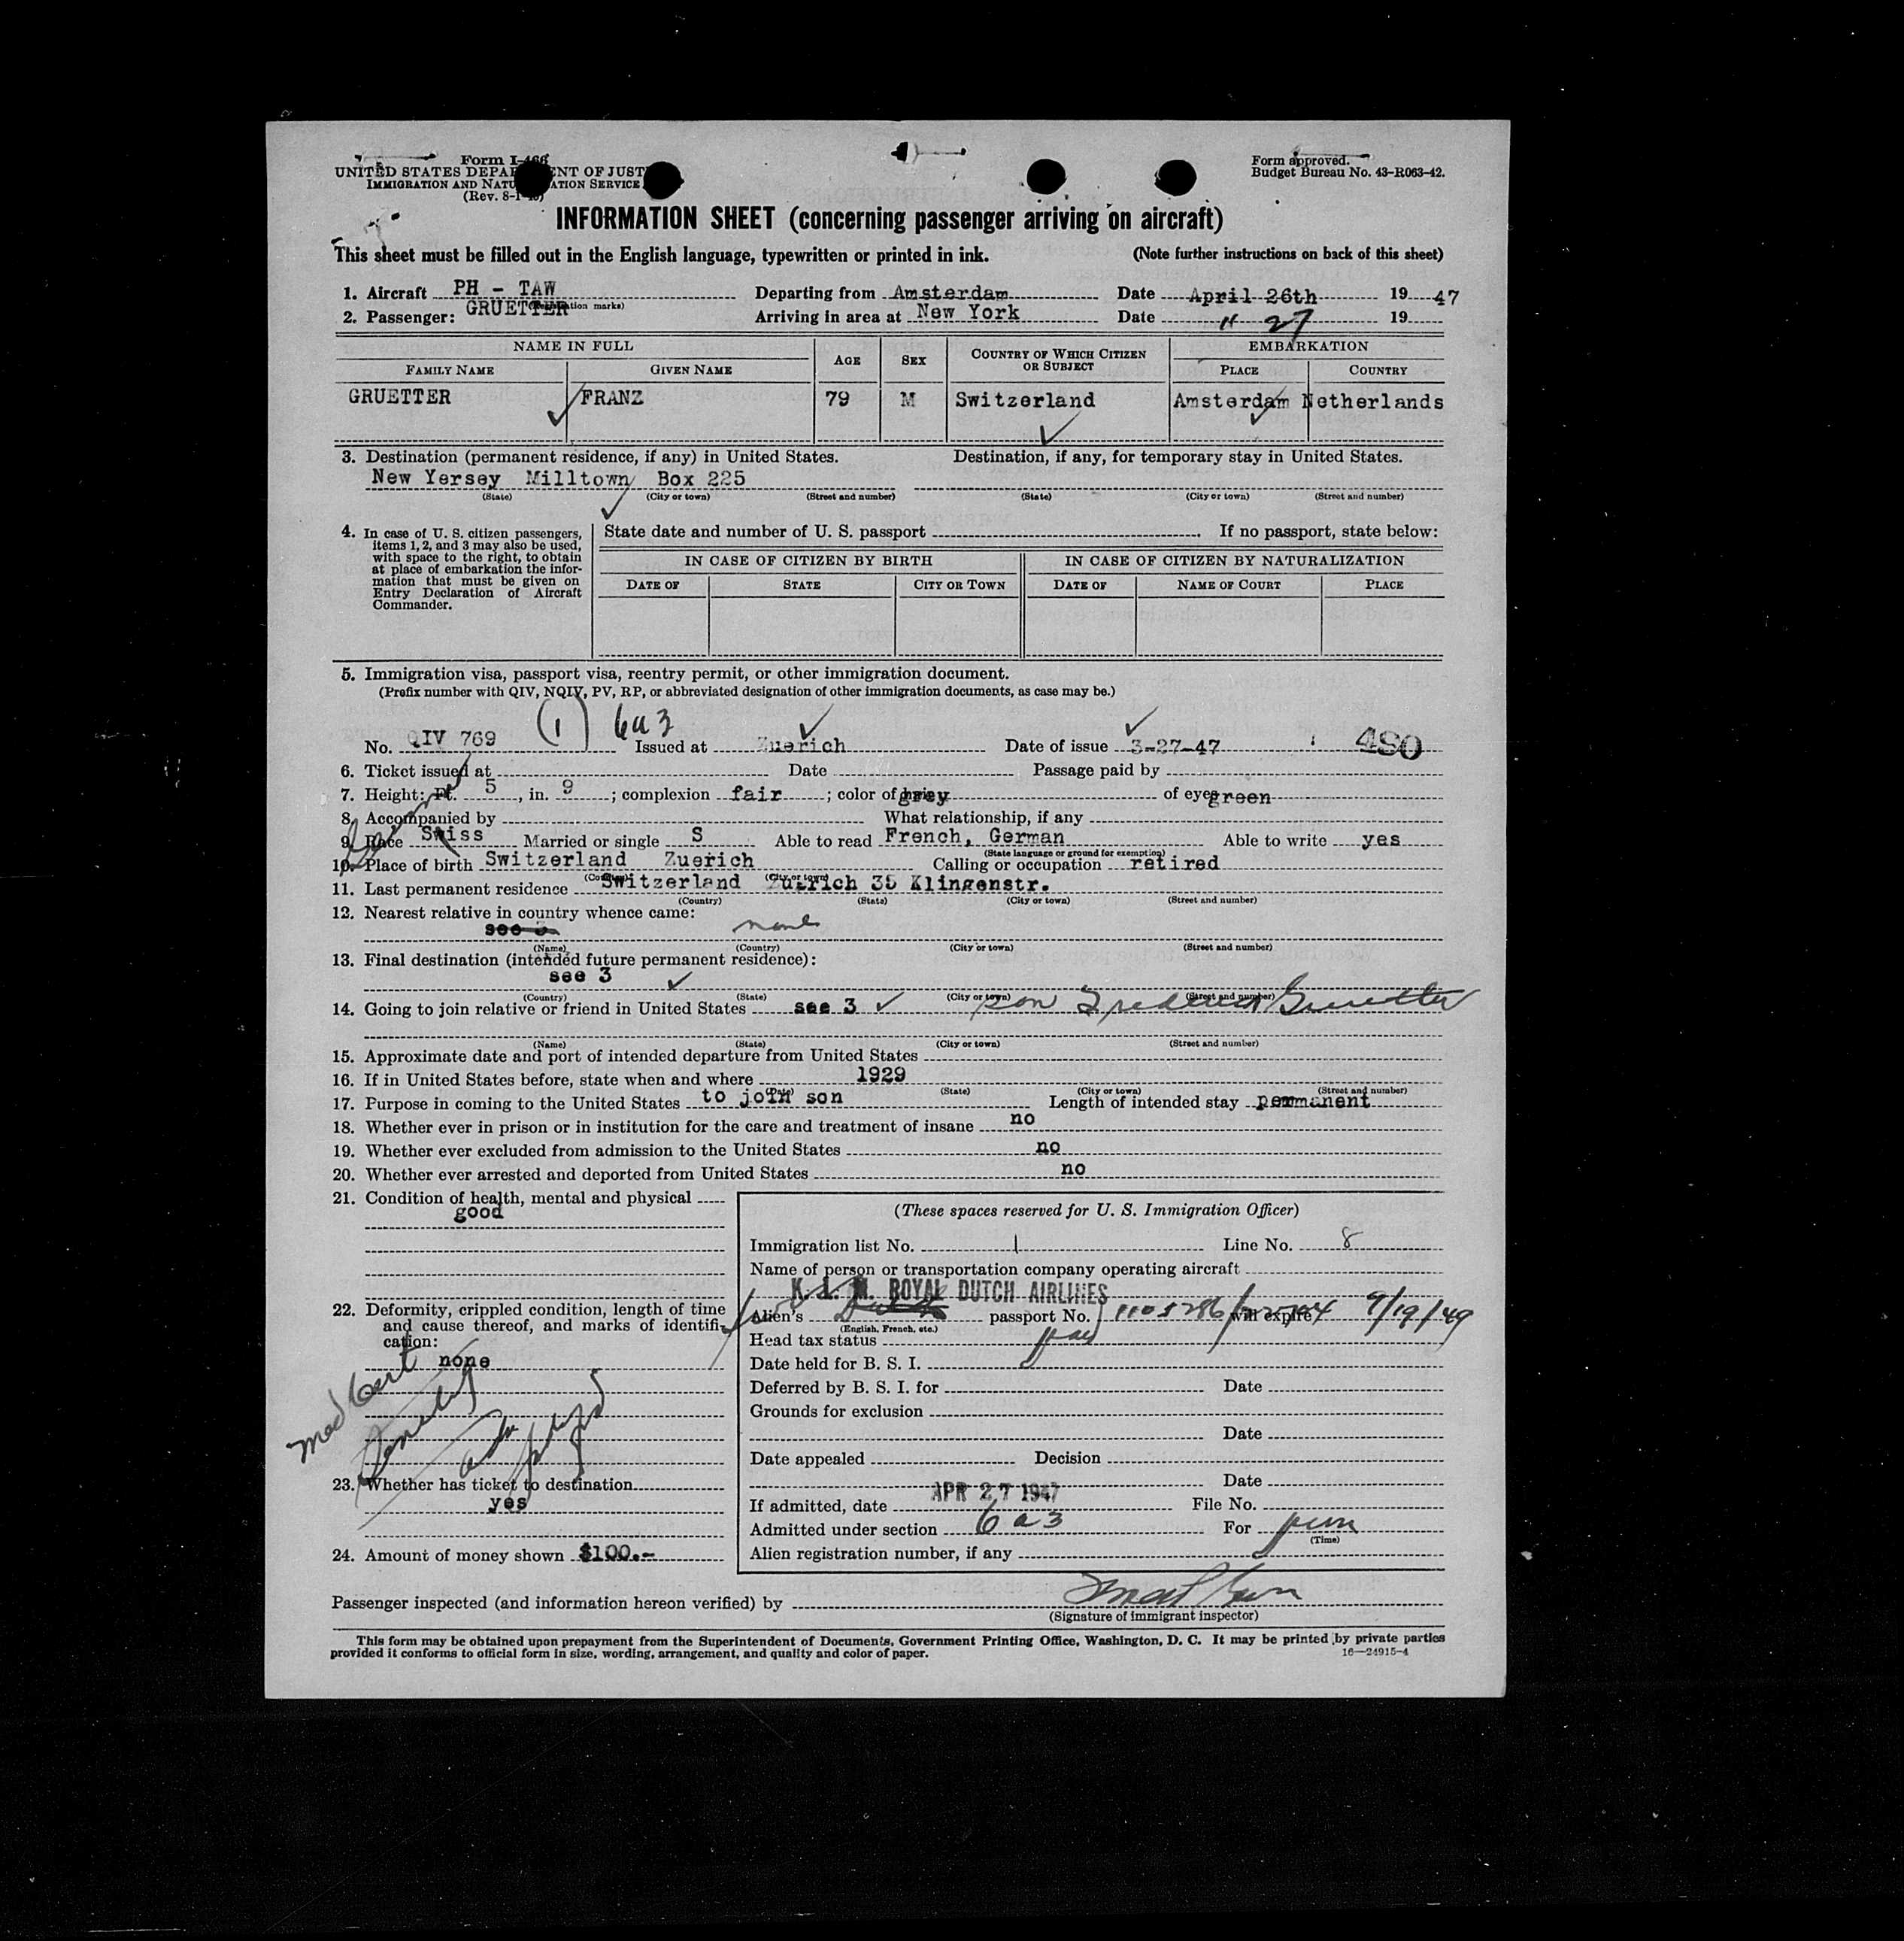 Form I-466
UNITED STATES DEPARTMENT OF JUSTICE
IMMIGRATION AND NATURALIZATION SERVICE
(Rev. 8-1-45)
Form approved.
Budget Bureau No. 43-R063-42.
INFORMATION SHEET (concerning passenger arriving on aircraft)
This sheet must be filled out in the English language, typewritten or printed in ink. (Note further instructions on back of this sheet)
1. Aircraft PH - TAW Departing from Amsterdam Date April 26th 19 47
(Registration marks)
2. Passenger: GRUETTER Arriving in area at New York Date " 27 19
NAME IN FULL AGE SEX COUNTRY OF WHICH CITIZEN OR SUBJECT EMBARKATION
FAMILY NAME GIVEN NAME PLACE COUNTRY
GRUETTER FRANZ 79 M Switzerland Amsterdam Netherlands
3. Destination (permanent residence, if any) in United States. Destination, if any, for temporary stay in United States.
New Yersey Milltown Box 225
(State) (City or town) (Street and number) (State) (City or town) (Street and number)
4. In case of U. S. citizen passengers, items 1, 2, and 3 may also be used, with space to the right, to obtain at place of embarkation the information that must be given on Entry Declaration of Aircraft Commander.
State date and number of U. S. passport If no passport, state below:
IN CASE OF CITIZEN BY BIRTH IN CASE OF CITIZEN BY NATURALIZATION
DATE OF STATE CITY OR TOWN DATE OF NAME OF COURT PLACE
5. Immigration visa, passport visa, reentry permit, or other immigration document.
(Prefix number with QIV, NQIV, PV, RP, or abbreviated designation of other immigration documents, as case may be.)
(1) 6a3
No. QIV 769 Issued at Zuerich Date of issue 3-27-47 480
6. Ticket issued at Date Passage paid by
7. Height: Ft. 5, in. 9; complexion fair; color of hair grey of eyes green
8. Accompanied by What relationship, if any
9. Race Swiss Married or single S Able to read French, German Able to write yes
(State language or ground for exemption)
10. Place of birth Switzerland Zuerich Calling or occupation retired
(Country) (City or town)
11. Last permanent residence Switzerland Zuerich 35 Klingenstr.
(Country) (State) (City or town) (Street and number)
12. Nearest relative in country whence came:
see 3 none
(Name) (Country) (City or town) (Street and number)
13. Final destination (intended future permanent residence):
see 3
(Country) (State) (City or town) (Street and number)
14. Going to join relative or friend in United States see 3 son Frederick Gruetter
(Name) (State) (City or town) (Street and number)
15. Approximate date and port of intended departure from United States
16. If in United States before, state when and where 1929
(Date) (State) (City or town) (Street and number)
17. Purpose in coming to the United States to join son Length of intended stay permanent
18. Whether ever in prison or in institution for the care and treatment of insane no
19. Whether ever excluded from admission to the United States no
20. Whether ever arrested and deported from United States no
21. Condition of health, mental and physical
good
22. Deformity, crippled condition, length of time and cause thereof, and marks of identification:
none
med Cert
Senility
23. Whether has ticket to destination
yes
24. Amount of money shown $100.-
(These spaces reserved for U. S. Immigration Officer)
Immigration list No. 1 Line No. 8
Name of person or transportation company operating aircraft
K. L. M. ROYAL DUTCH AIRLINES
Alien's passport No. will expire 9/19/49
(English, French, etc.)
Head tax status
Date held for B. S. I.
Deferred by B. S. I. for Date
Grounds for exclusion
Date
Date appealed Decision
Date
If admitted, date APR 27 1947 File No.
Admitted under section 6a3 For perm
(Time)
Alien registration number, if any
Passenger inspected (and information hereon verified) by
(Signature of immigrant inspector)
This form may be obtained upon prepayment from the Superintendent of Documents, Government Printing Office, Washington, D. C. It may be printed by private parties
provided it conforms to official form in size, wording, arrangement, and quality and color of paper. 16—24915-4